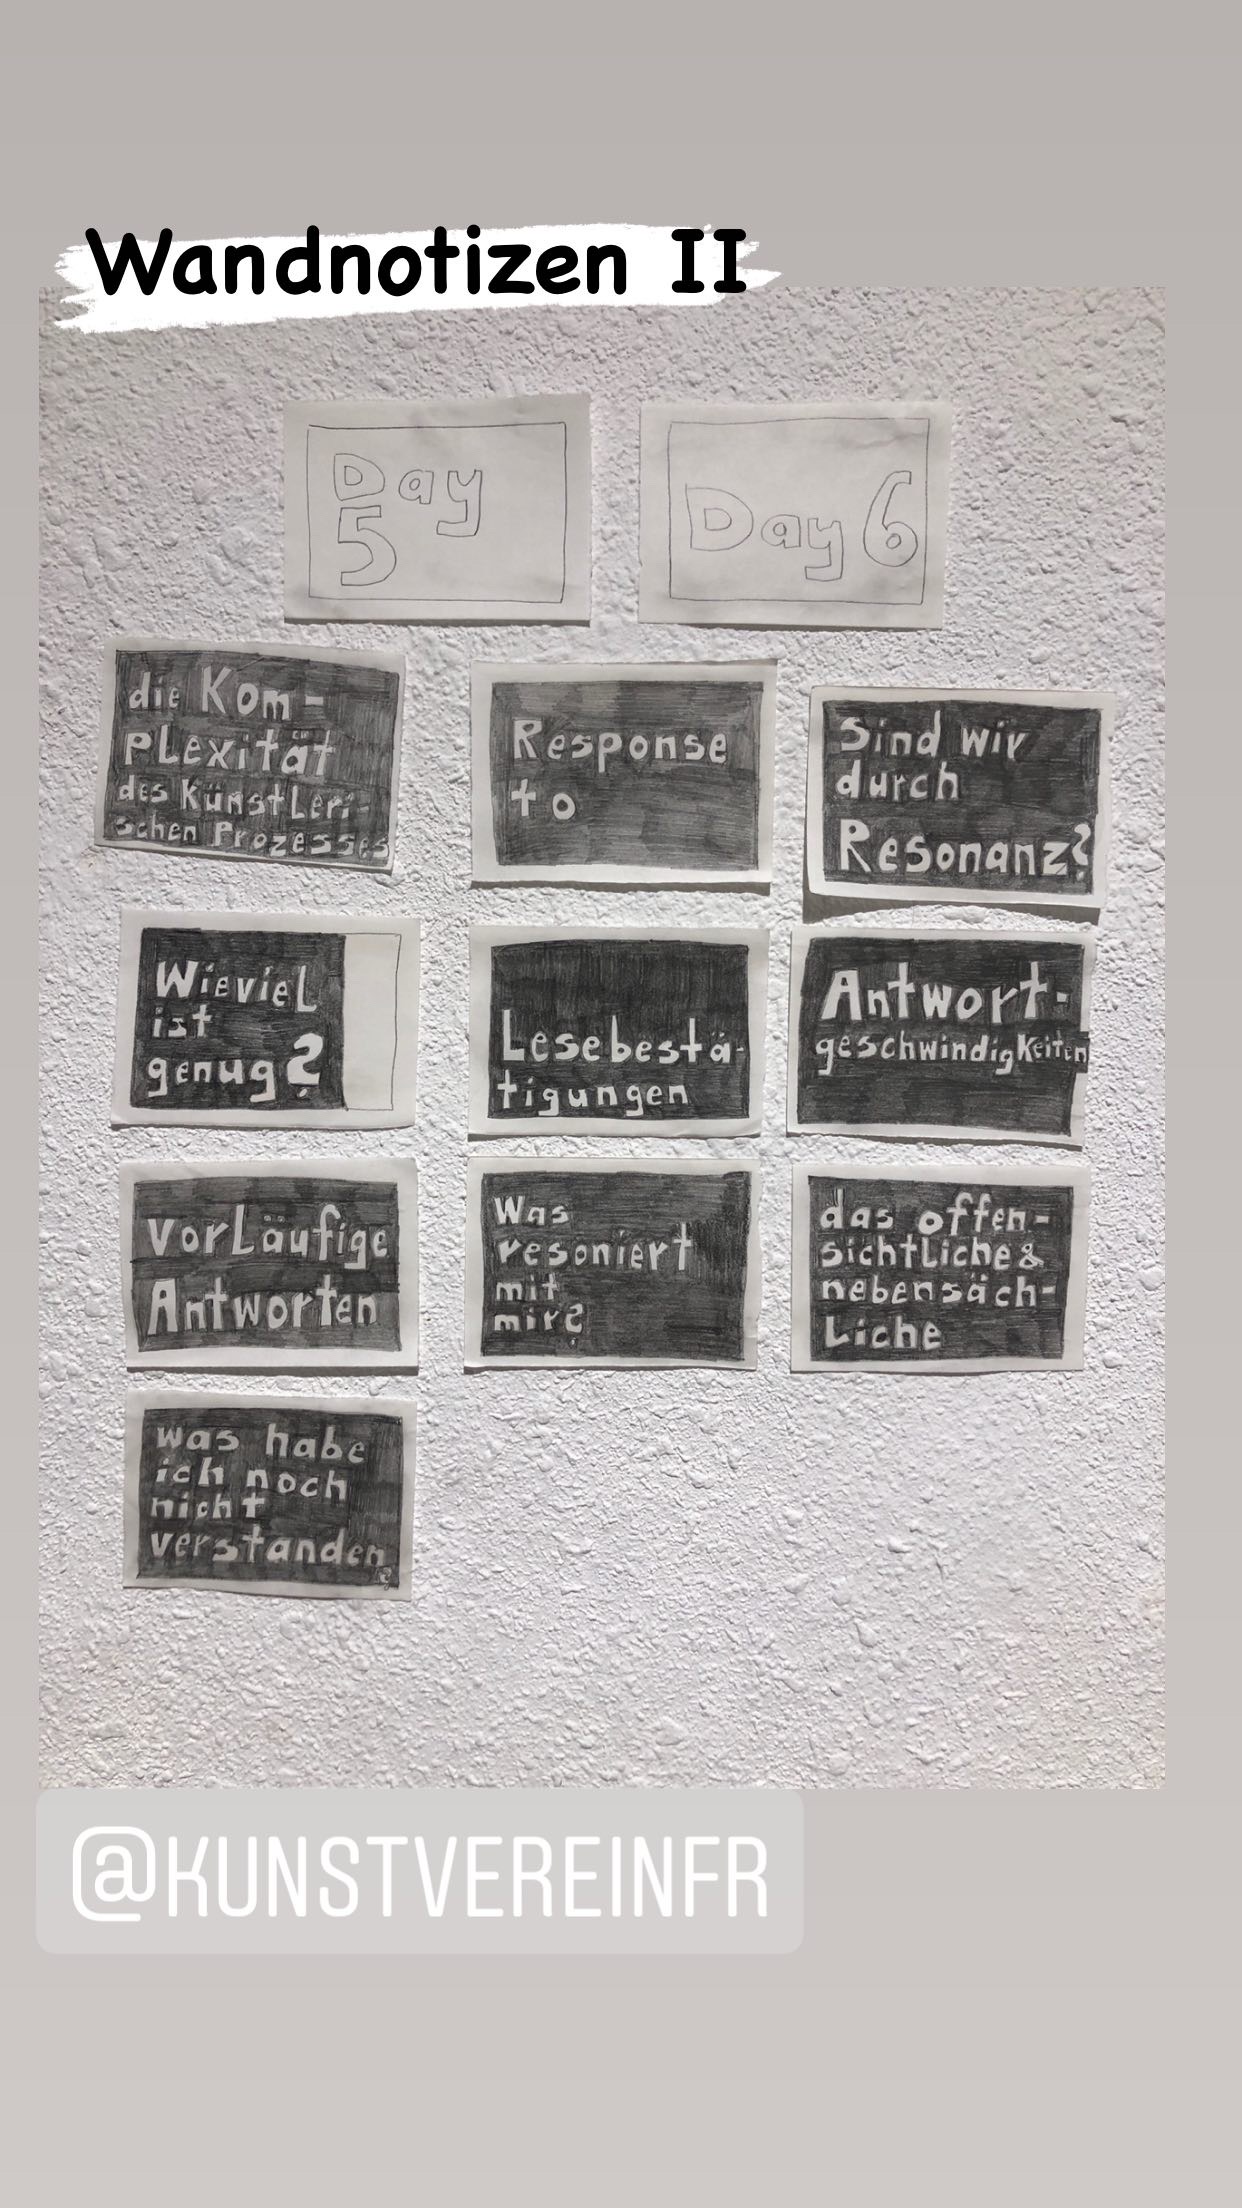 Wandnotizen II
Day
5
Day 6
die Kom-
plexität
des Künstleri-
schen Prozesses
Response
to
Sind wir
durch
Resonanz?
Wieviel
ist
genug?
Lesebestä-
tigungen
Antwort-
geschwindigkeiten
vorläufige
Antworten
Was
resoniert
mit
mir?
das offen-
sichtliche &
nebensäch-
liche
was habe
ich noch
nicht
verstanden?
@KUNSTVEREINFR